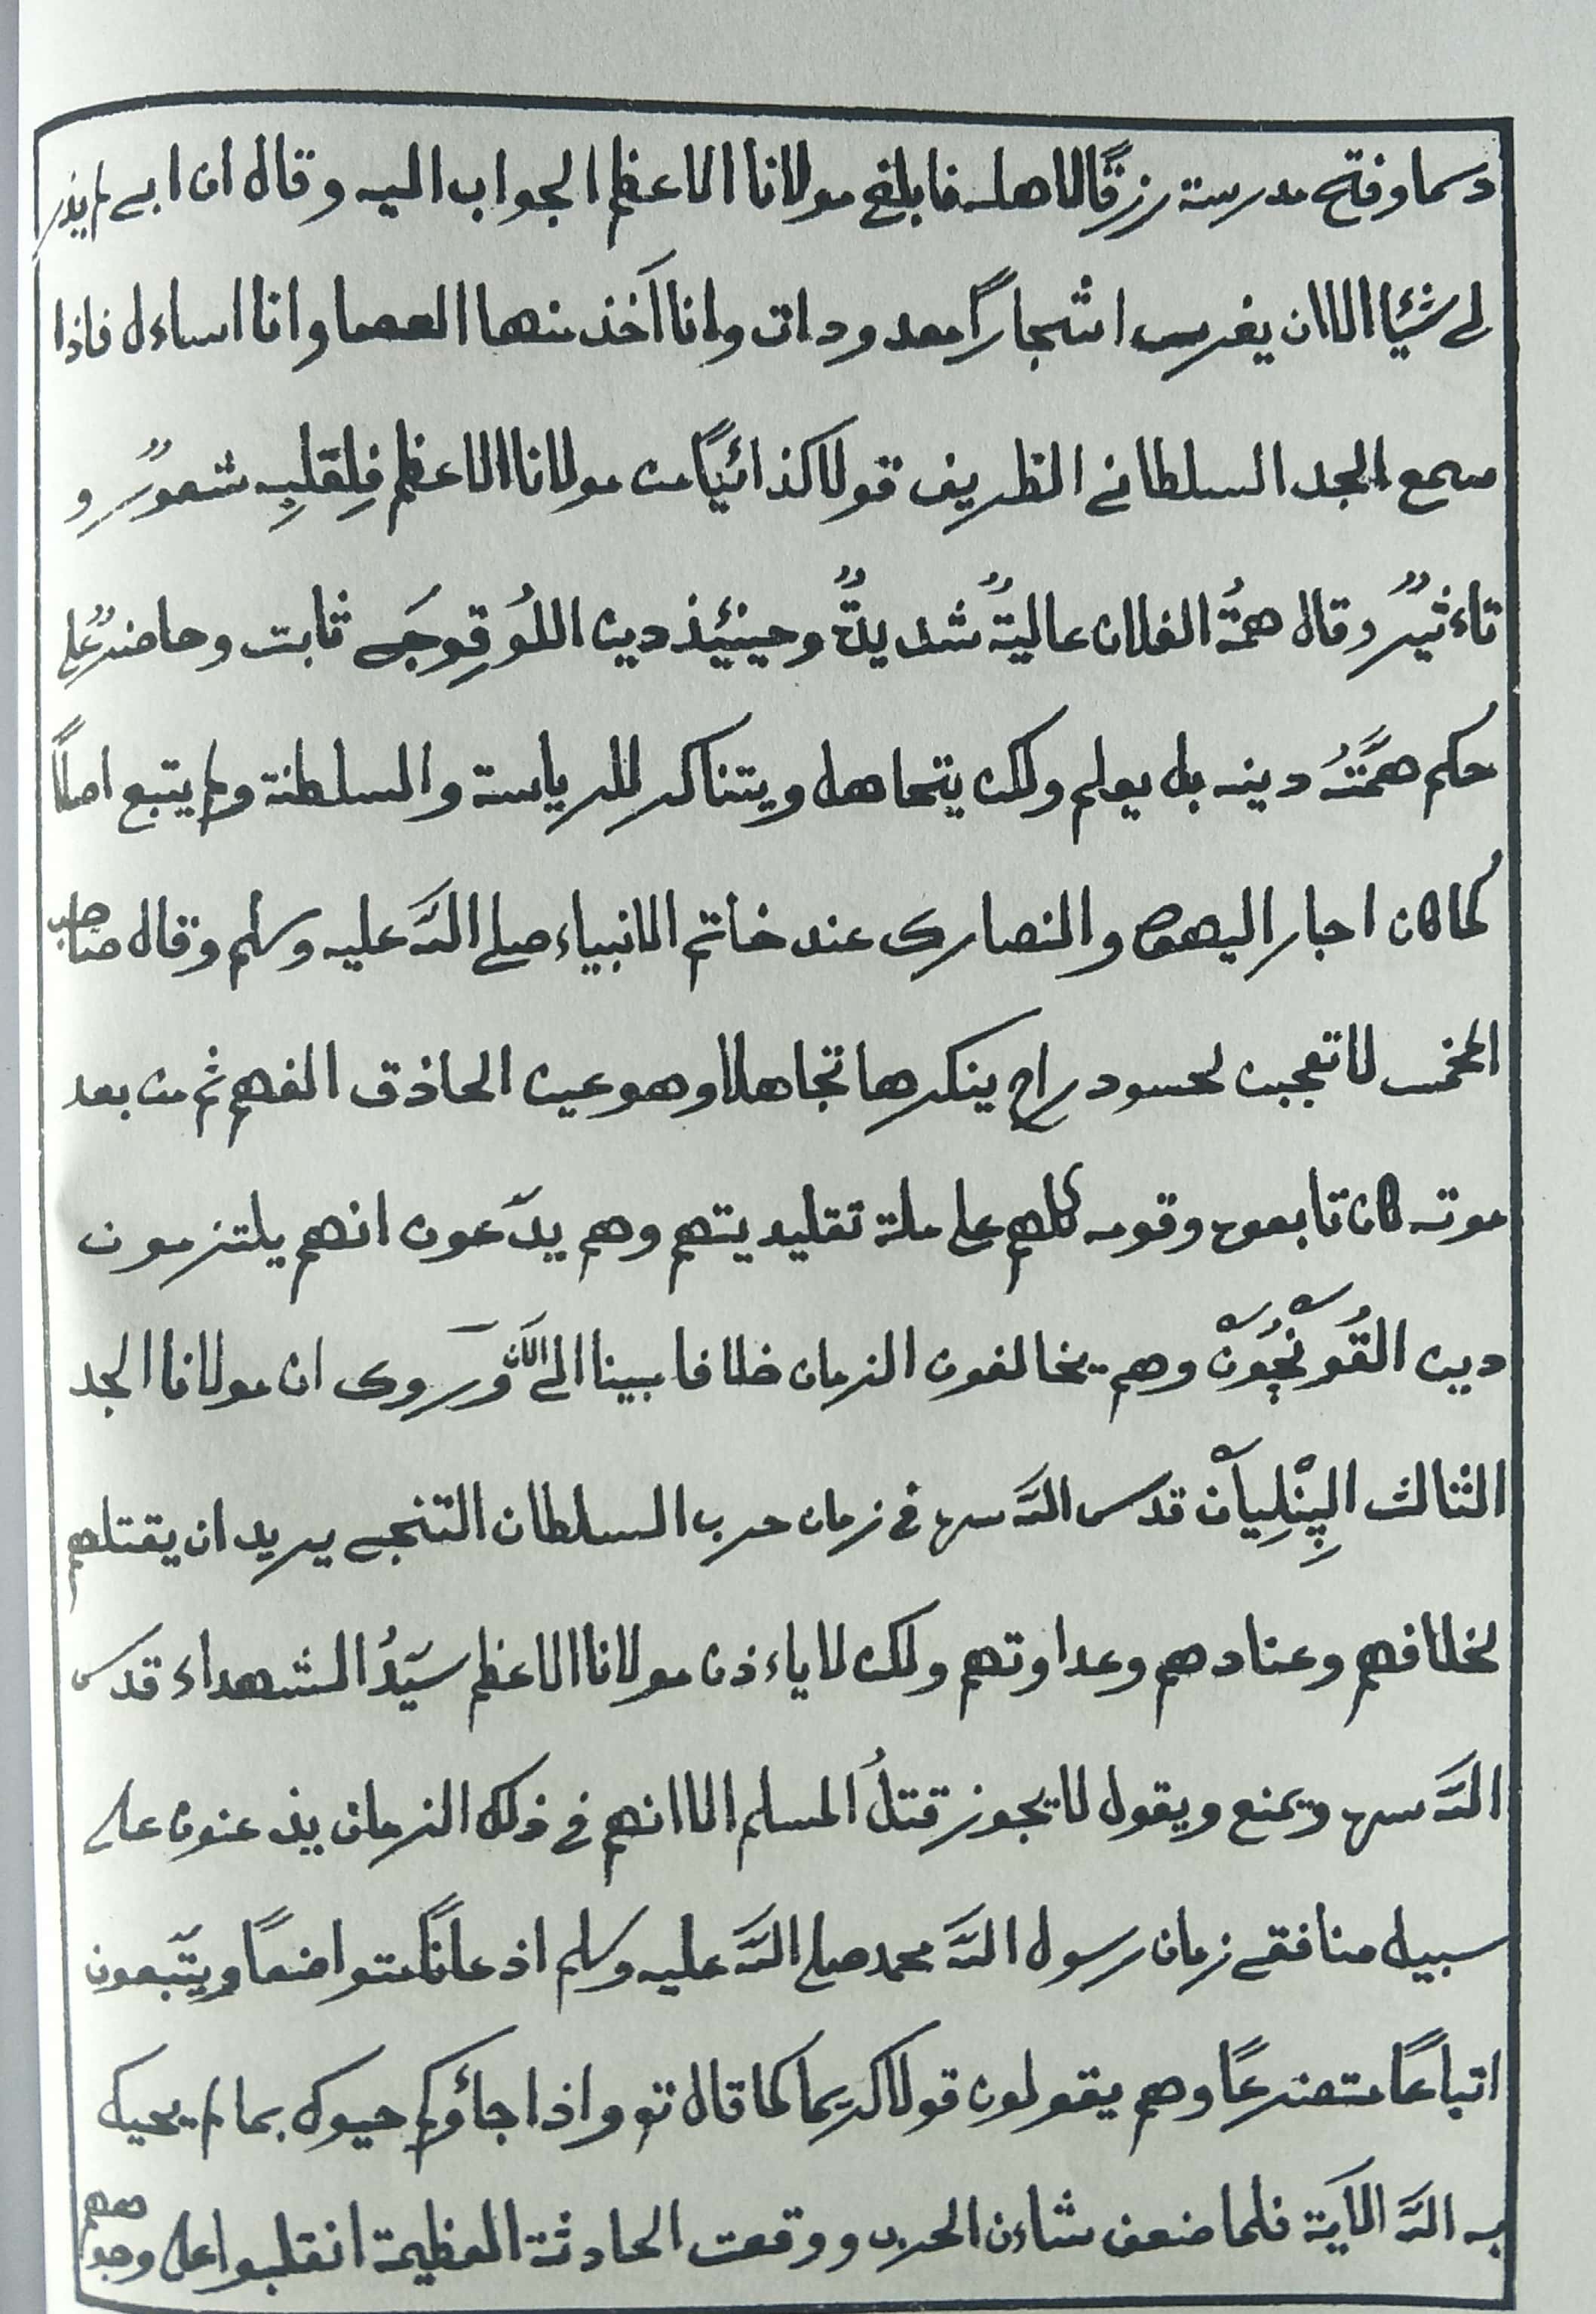 دسما وفتح مدرسة رزقًا لاهله فابلغ مولانا الاعظم الجواب اليه وقال ان ابي لم يذر
لى شئًا الا ان يغرس اشجارًا معدودات وانا آخذ منها العصا وانا اساءل فاذا
سمع الجد السلطانى الظريف قولا كذائيًا من مولانا الاعظم فلقلبِه شعورٌ و
تاءثيرٌ وقال همةُ الفلان عاليةٌ شديدةٌ وحينئِذ دين اللُوقوجَى ثابت وحاضرٌ على
حكم همَّتُه دينه بل يعلم ولكن يتجاهل ويتناكر للرياسة والسلطنة ولم يتبع اصلًا
كما كان احبار اليهود والنصارى عند خاتم الانبياء صلى اللّه عليه وسلم وقال صاحب
المخمس لا تعجبن لحسود راح ينكرها تجاهلا وهو عين الحاذق الفهم ثم من بعد
موته كان تابعوه وقومه كلهم على ملة تقليديتهم وهم يدّعون انهم يلتزمون
دين القُونْچُونْ وهم يخالفون الزمان خلافا بينا الى الآن وَروى ان مولانا الجد
الثالث الپِنْلِيانْ قدس اللّه سره فى زمان حرب السلطان التنجى يريد ان يقتلهم
لخلافهم وعنادهم وعداوتهم ولكن لا ياءذن مولانا الاعظم سيّدُ الشهداء قدس
اللّه سره ويمنع ويقول لا يجوز قتلُ المسلم الا انهم فى ذلك الزمان يذعنون على
سبيل منافقى زمان رسول اللّه محمد صلى اللّه عليه وسلم اذعانًا متواضعًا ويتّبعون
اتباعًا متضرعًا وهم يقولون قولا كريما كما قال تع واذا جاؤكم حيوك بما لم يحيك
به اللّه الآية فلما ضعف شاءن الحرب ووقعت الحادثة العظيمة انقلبوا على وجوههم